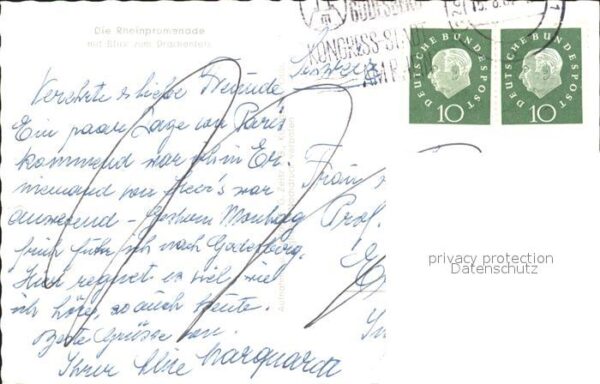 Die Rheinpromenade
mit Blick zum Drachenfels
GODESBERG
KONGRESS-STADT
AM R
DEUTSCHE BUNDESPOST
10
DEUTSCHE BUNDESPOST
10
Verehrte & liebe Freunde
Ein paar Tage von Paris
kommend war ich in
niemand von war
anwesend - Gestern Montag
früh fuhr ich nach Godesberg.
Hier regnet es viel, wie
ich höre, so auch heute.
Beste Grüsse von
Ihrer Marquardt
Frau
Prof.
privacy protection
Datenschutz